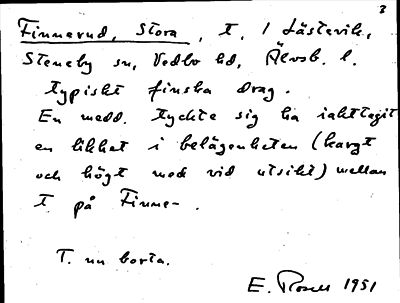 3
Finnerud, Stora, t. i Lästevik,
Steneby sn, Vedbo hd, Älvsb. l.
typiskt finska drag.
En medd. tyckte sig ha iakttagit
en likhet i belägenheten (bergt
och högt med vid utsikt) mellan
t. på Finne-.
T. nu borta.
E. Rosell 1951